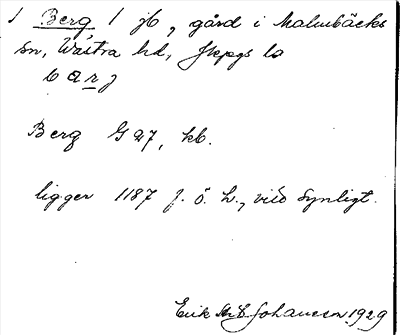 1 Berg 1 jb, gård i Malmbäcks
sn, Västra hd, Jkpgs lo
barj
Berg G a7, kb.
ligger 1187 f. ö. h., vida synligt.
Erik Johansson 1929